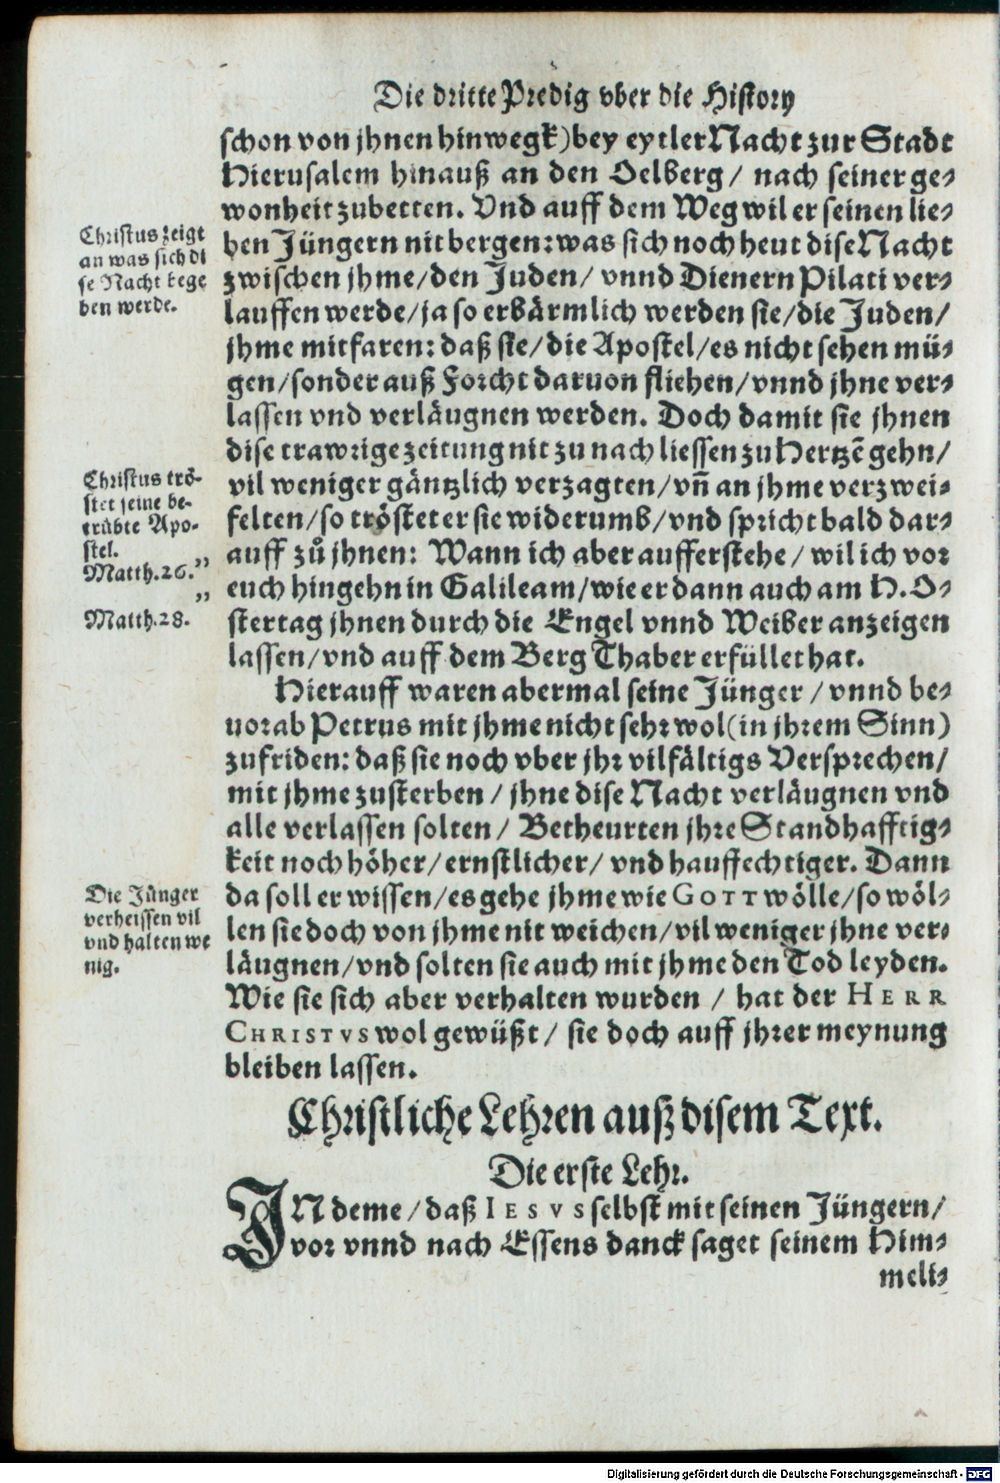 Die dritte Predig vber die History
schon von jhnen hinwegk) bey eytler Nacht zur Stadt
Hierusalem hinauß an den Oelberg / nach seiner ge-
wonheit zubetten. Vnd auff dem Weg wil er seinen lie-
ben Jüngern nit bergen: was sich noch heut dise Nacht
zwischen jhme / den Juden / vnnd Dienern Pilati ver-
lauffen werde / ja so erbärmlich werden sie / die Juden /
jhme mitfaren: daß sie / die Apostel / es nicht sehen mü-
gen / sonder auß Forcht daruon fliehen / vnnd jhne ver-
lassen vnd verläugnen werden. Doch damit sie jhnen
dise trawrige zeitung nit zu nach liessen zu Hertzē gehn /
vil weniger gäntzlich verzagten / vñ an jhme verzwei-
felten / so tröstet er sie widerumb / vnd spricht bald dar-
auff zů jhnen: Wann ich aber aufferstehe / wil ich vor
euch hingehn in Galileam / wie er dann auch am H. O-
stertag jhnen durch die Engel vnnd Weiber anzeigen
lassen / vnd auff dem Berg Thaber erfüllet hat.
Christus zeigt
an was sich di
se Nacht bege
ben werde.
Christus trö-
stet seine be-
trübte Apo-
stel. „
Matth. 26. „
Matth. 28.
Hierauff waren abermal seine Jünger / vnnd be-
uorab Petrus mit jhme nicht sehr wol (in jhrem Sinn)
zufriden: daß sie noch vber jhr vilfältigs Versprechen /
mit jhme zusterben / jhne dise Nacht verläugnen vnd
alle verlassen solten / Betheurten jhre Standhafftig-
keit noch höher / ernstlicher / vnd hauffechtiger. Dann
da soll er wissen / es gehe jhme wie GOTT wölle / so wöl-
len sie doch von jhme nit weichen / vil weniger jhne ver-
läugnen / vnd solten sie auch mit jhme den Tod leyden.
Wie sie sich aber verhalten wurden / hat der HERR
CHRISTVS wol gewüßt / sie doch auff jhrer meynung
bleiben lassen.
Die Jünger
verheissen vil
vnd halten we
nig.
Christliche Lehren auß disem Text.
Die erste Lehr.
IN deme / daß IESVS selbst mit seinen Jüngern /
vor vnnd nach Essens danck saget seinem Him-
meli-
Digitalisierung gefördert durch die Deutsche Forschungsgemeinschaft - DFG